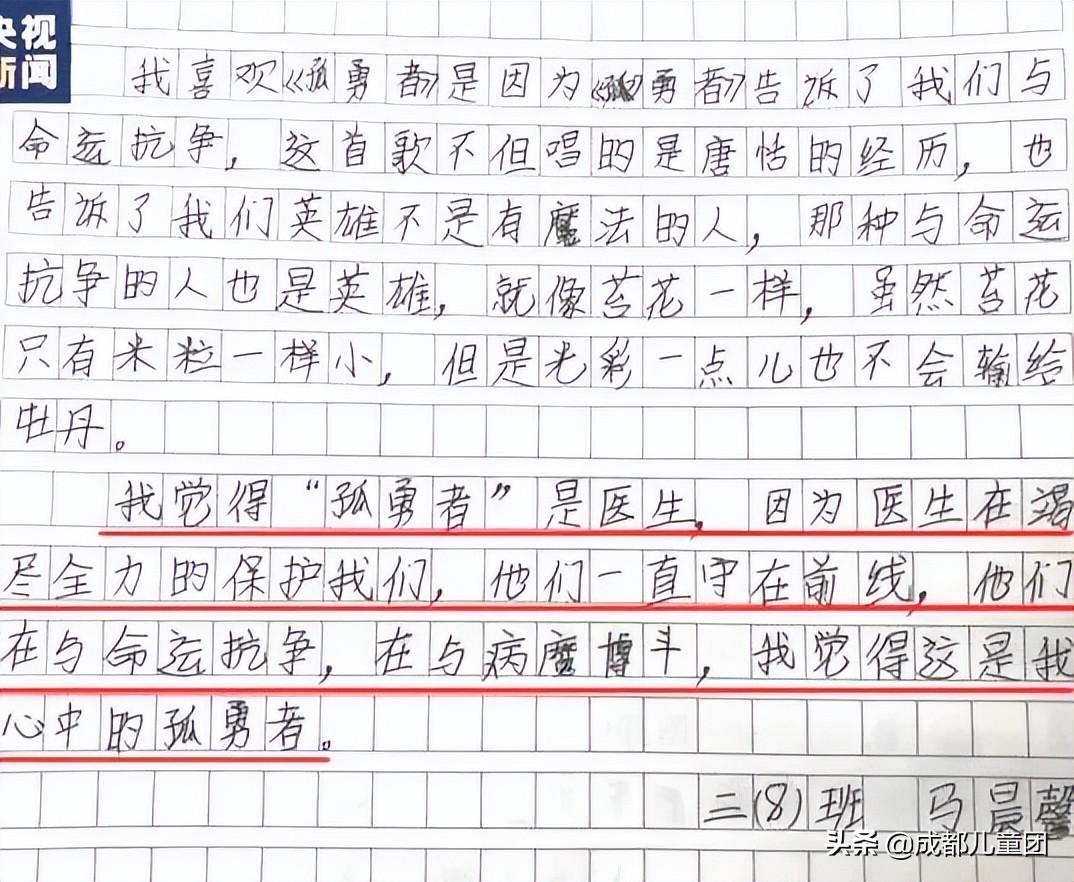 央视
新闻
我喜欢《孤勇者》是因为《孤勇者》告诉了我们与
命运抗争，这首歌不但唱的是唐恬的经历，也
告诉了我们英雄不是有魔法的人，那种与命运
抗争的人也是英雄，就像苔花一样，虽然苔花
只有米粒一样小，但是光彩一点儿也不会输给
牡丹。
我觉得“孤勇者”是医生，因为医生在竭
尽全力的保护我们，他们一直守在前线，他们
在与命运抗争，在与病魔博斗，我觉得这是我
心中的孤勇者。
二(8)班 马晨馨
头条 @成都儿童团